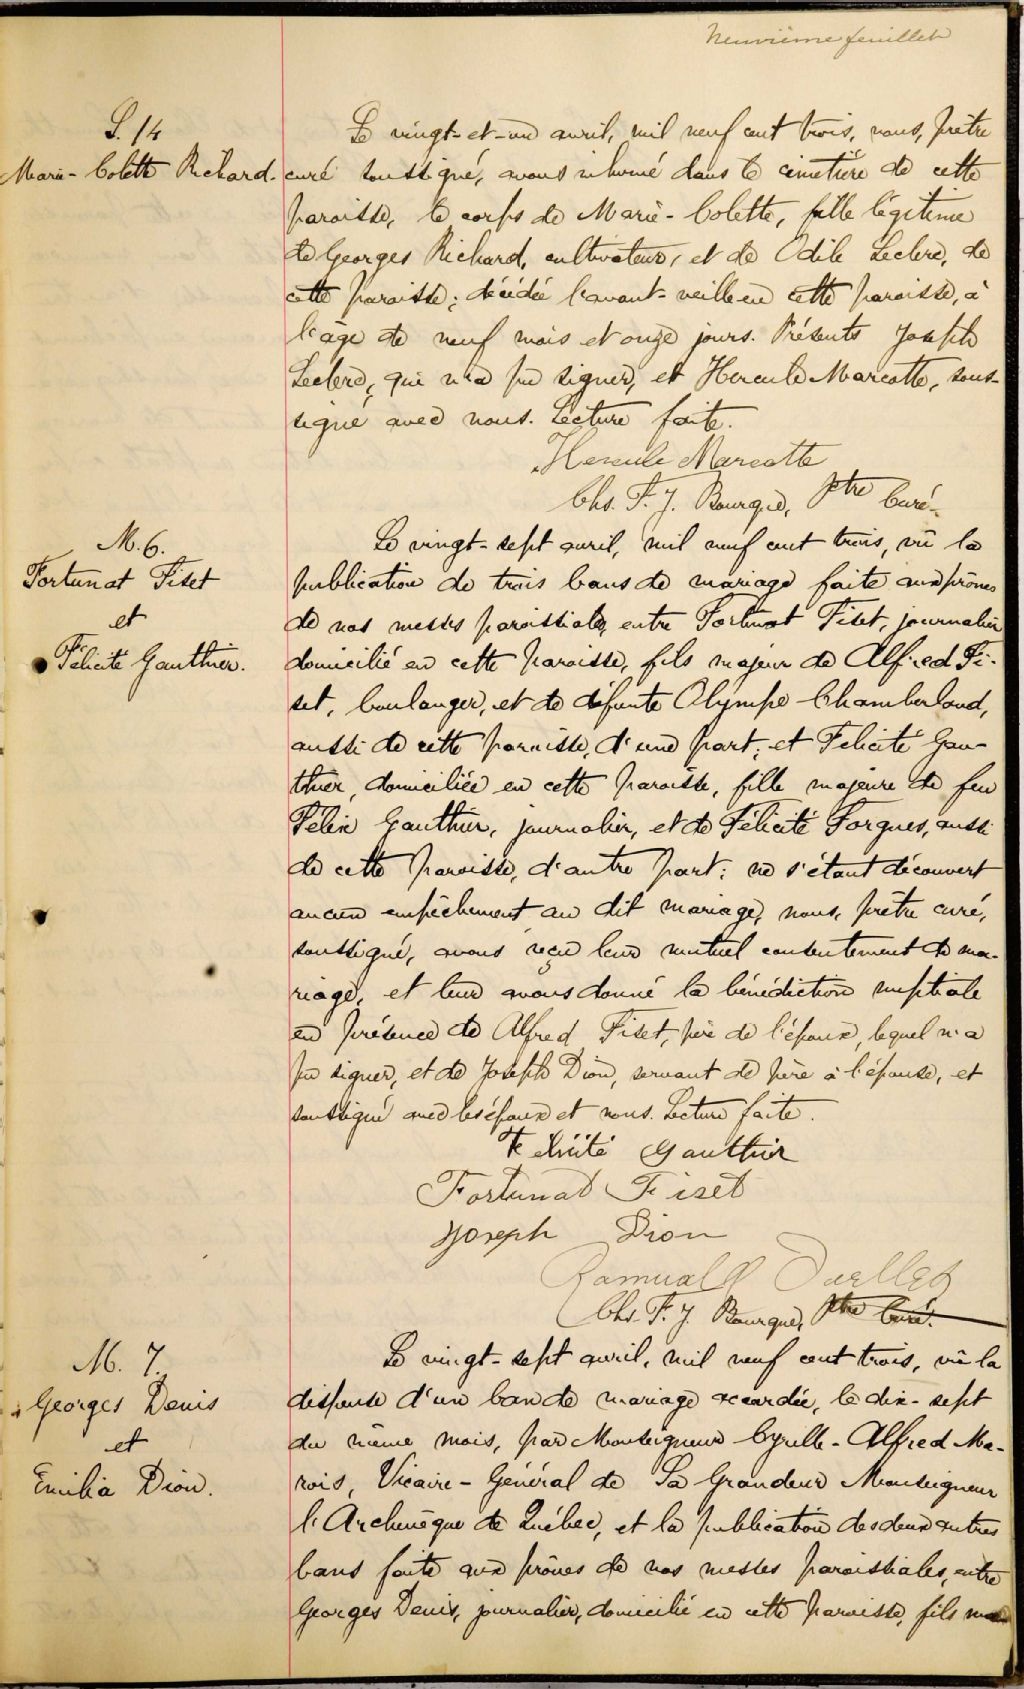 Neuvième feuillet
S. 14
Marie-Colette Richard.
Le vingt-et-un avril, mil neuf cent trois, nous, prêtre
curé soussigné, avons inhumé dans le cimetière de cette
paroisse, le corps de Marie-Colette, fille légitime
de Georges Richard, cultivateur, et de Odile Leclerc, de
cette paroisse; décédée l'avant-veille en cette paroisse, à
l'âge de neuf mois et onze jours. Présents Joseph
Leclerc, qui n'a pu signer, et Hercule Marcotte, sous-
signé avec nous. Lecture faite.
Hercule Marcotte
Chs. F. J. Bourque, Ptre Curé.
M. 6.
Fortunat Fiset
et
Félicité Gauthier.
Le vingt-sept avril, mil neuf cent trois, vû la
publication de trois bans de mariage faite aux prônes
de nos messes paroissiales, entre Fortunat Fiset, journalier
domicilié en cette paroisse, fils majeur de Alfred Fi-
set, boulanger, et de défunte Olympe Chamberland,
aussi de cette paroisse, d'une part; et Felicité Gau-
thier, domiciliée en cette paroisse, fille majeure de feu
Félix Gauthier, journalier, et de Félicité Forgues, aussi
de cette paroisse, d'autre part; ne s'étant découvert
aucun empêchement au dit mariage, nous, prêtre curé,
soussigné, avons reçu leur mutuel consentement de ma-
riage, et leur avons donné la bénédiction nuptiale
en présence de Alfred Fiset, père de l'époux, lequel n'a
pu signer, et de Joseph Dion, servant de père à l'épouse, et
soussigné avec les époux et nous. Lecture faite.
Félicité Gauthier
Fortunat Fiset
Joseph Dion
Romuald Ouellet
Chs. F. J. Bourque, Ptre Curé.
M. 7.
Georges Denis
et
Emilia Dion.
Le vingt-sept avril, mil neuf cent trois, vû la
dispense d'un ban de mariage accordée, le dix-sept
du même mois, par Monseigneur Cyrille-Alfred Ma-
rois, Vicaire-Général de Sa Grandeur Monseigneur
l'Archevêque de Québec, et la publication des deux autres
bans faite aux prônes de nos messes paroissiales, entre
Georges Denis, journalier, domicilié en cette paroisse, fils ma-